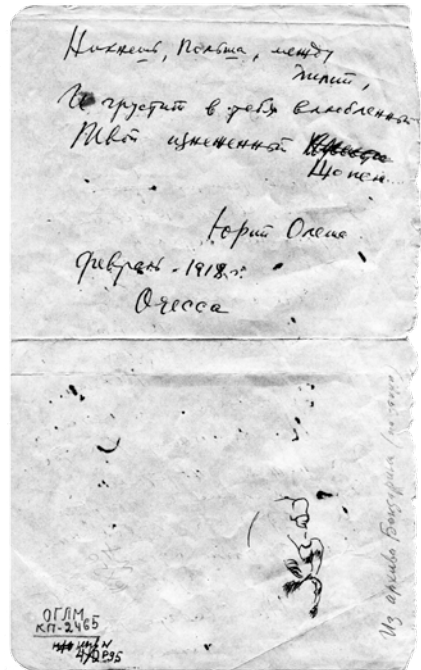 Никнешь, Польша, между
лилий,
И грустит в тебя влюбленный
Твой изнеженный
Шопен.
Юрий Олеша.
февраль - 1918 г.
Одесса
Из архива
ОГЛМ
КП-2465